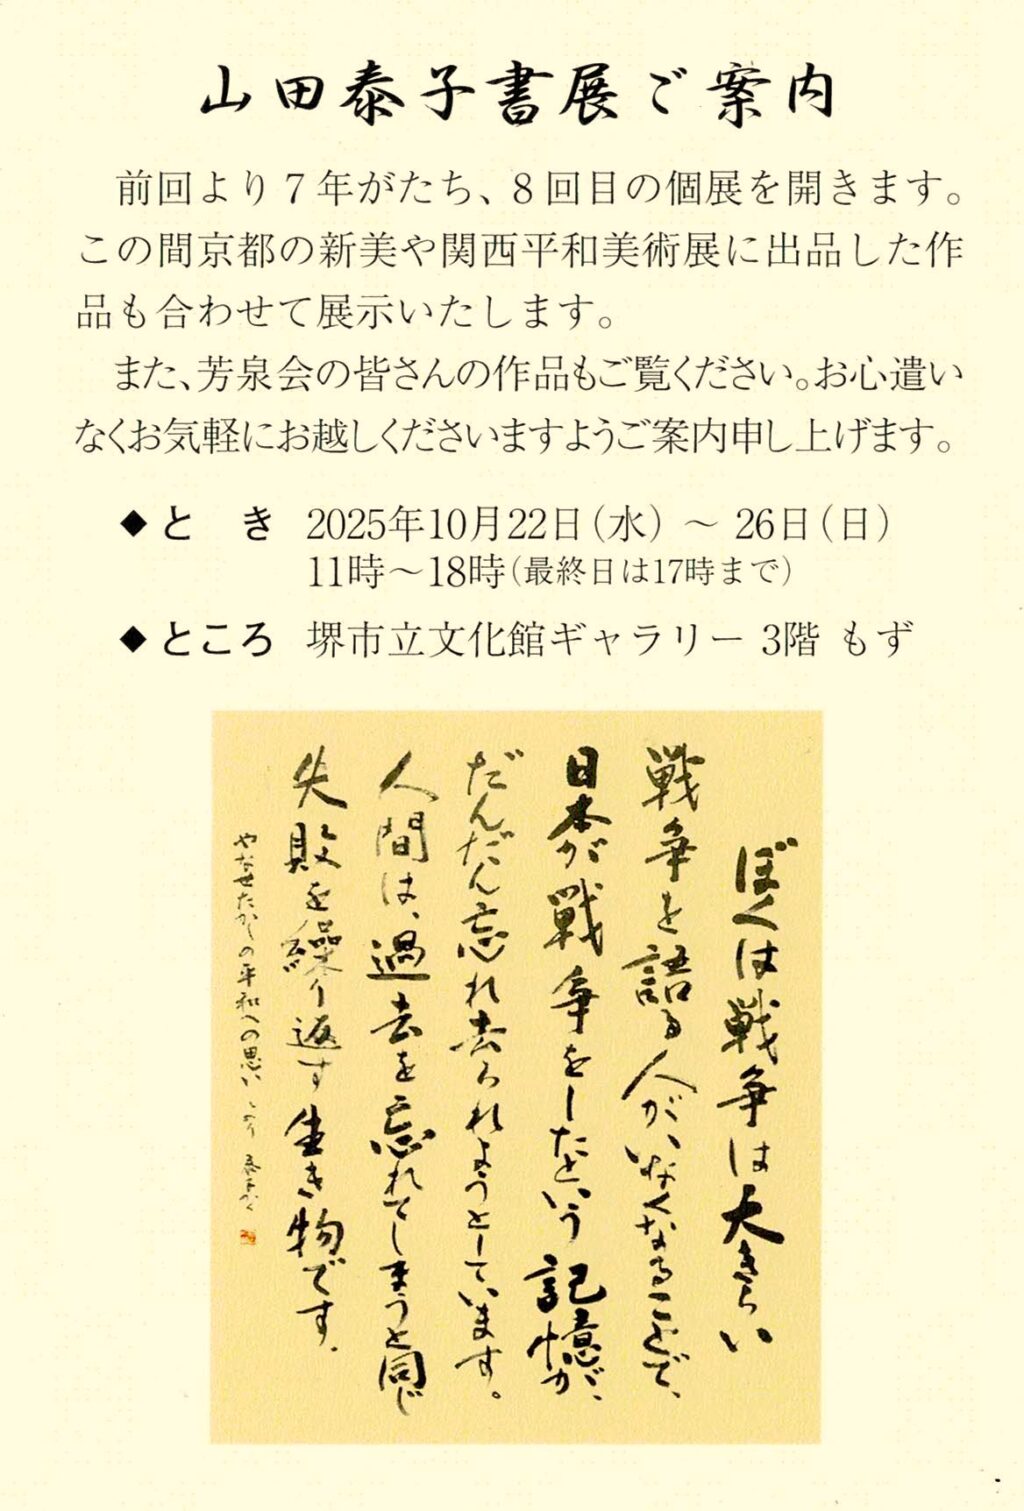 山田泰子書展ご案内
前回より7年がたち、8回目の個展を開きます。
この間京都の新美や関西平和美術展に出品した作
品も合わせて展示いたします。
また、芳泉会の皆さんの作品もご覧ください。お心遣い
なくお気軽にお越しくださいますようご案内申し上げます。
◆とき 2025年10月22日（水）～26日（日）
11時～18時（最終日は17時まで）
◆ところ 堺市立文化館ギャラリー 3階 もず
ぼくは戦争は大きらい
戦争を語る人がいなくなることで、
日本が戦争をしたという記憶が、
だんだん忘れ去られようとしています。
人間は、過去を忘れてしまうと同じ
失敗を繰り返す生き物です。
やなせたかしの平和への思いより